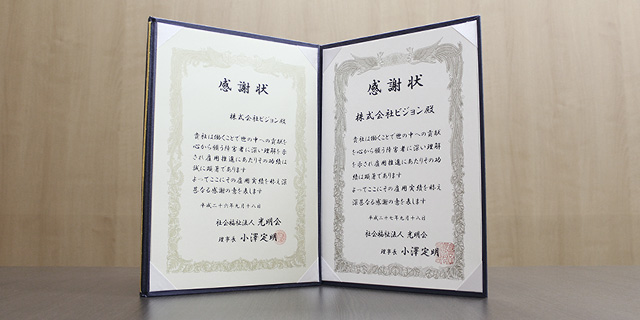 感謝状
株式会社ビジョン殿
貴社は働くことで世の中への貢献
を心から願う障害者に深い理解を示
され雇用推進にあたりその功績は
誠に顕著であります
よってここにその雇用実績を称え深
甚なる感謝の意を表します
平成二十六年九月十八日
社会福祉法人 光明会
理事長 小澤定明
感謝状
株式会社ビジョン殿
貴社は働くことで世の中への貢献
を心から願う障害者に深い理解
を示され雇用推進にあたりその功
績は誠に顕著であります
よってここにその雇用実績を称え
深甚なる感謝の意を表します
平成二十七年九月十八日
社会福祉法人 光明会
理事長 小澤定明